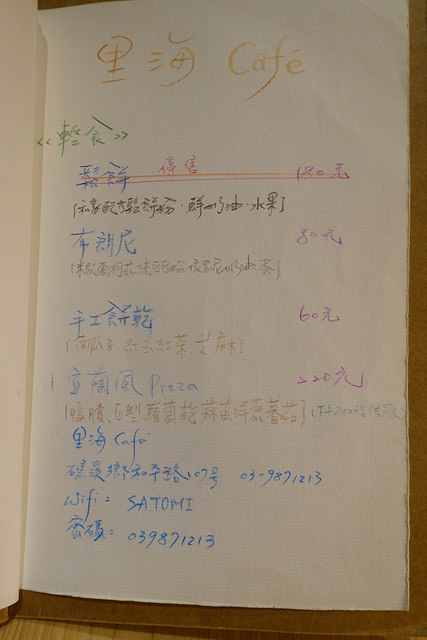 里海 Café
<<輕食>>
鬆餅 停售 180元
(私家配方鬆餅粉.鮮奶油.水果)
布朗尼 80元
手工餅乾 60元
宜蘭風 Pizza 220元
里海 Café
礁溪鄉和平路107號 03-9871213
Wifi: SATOMI
密碼: 039871213